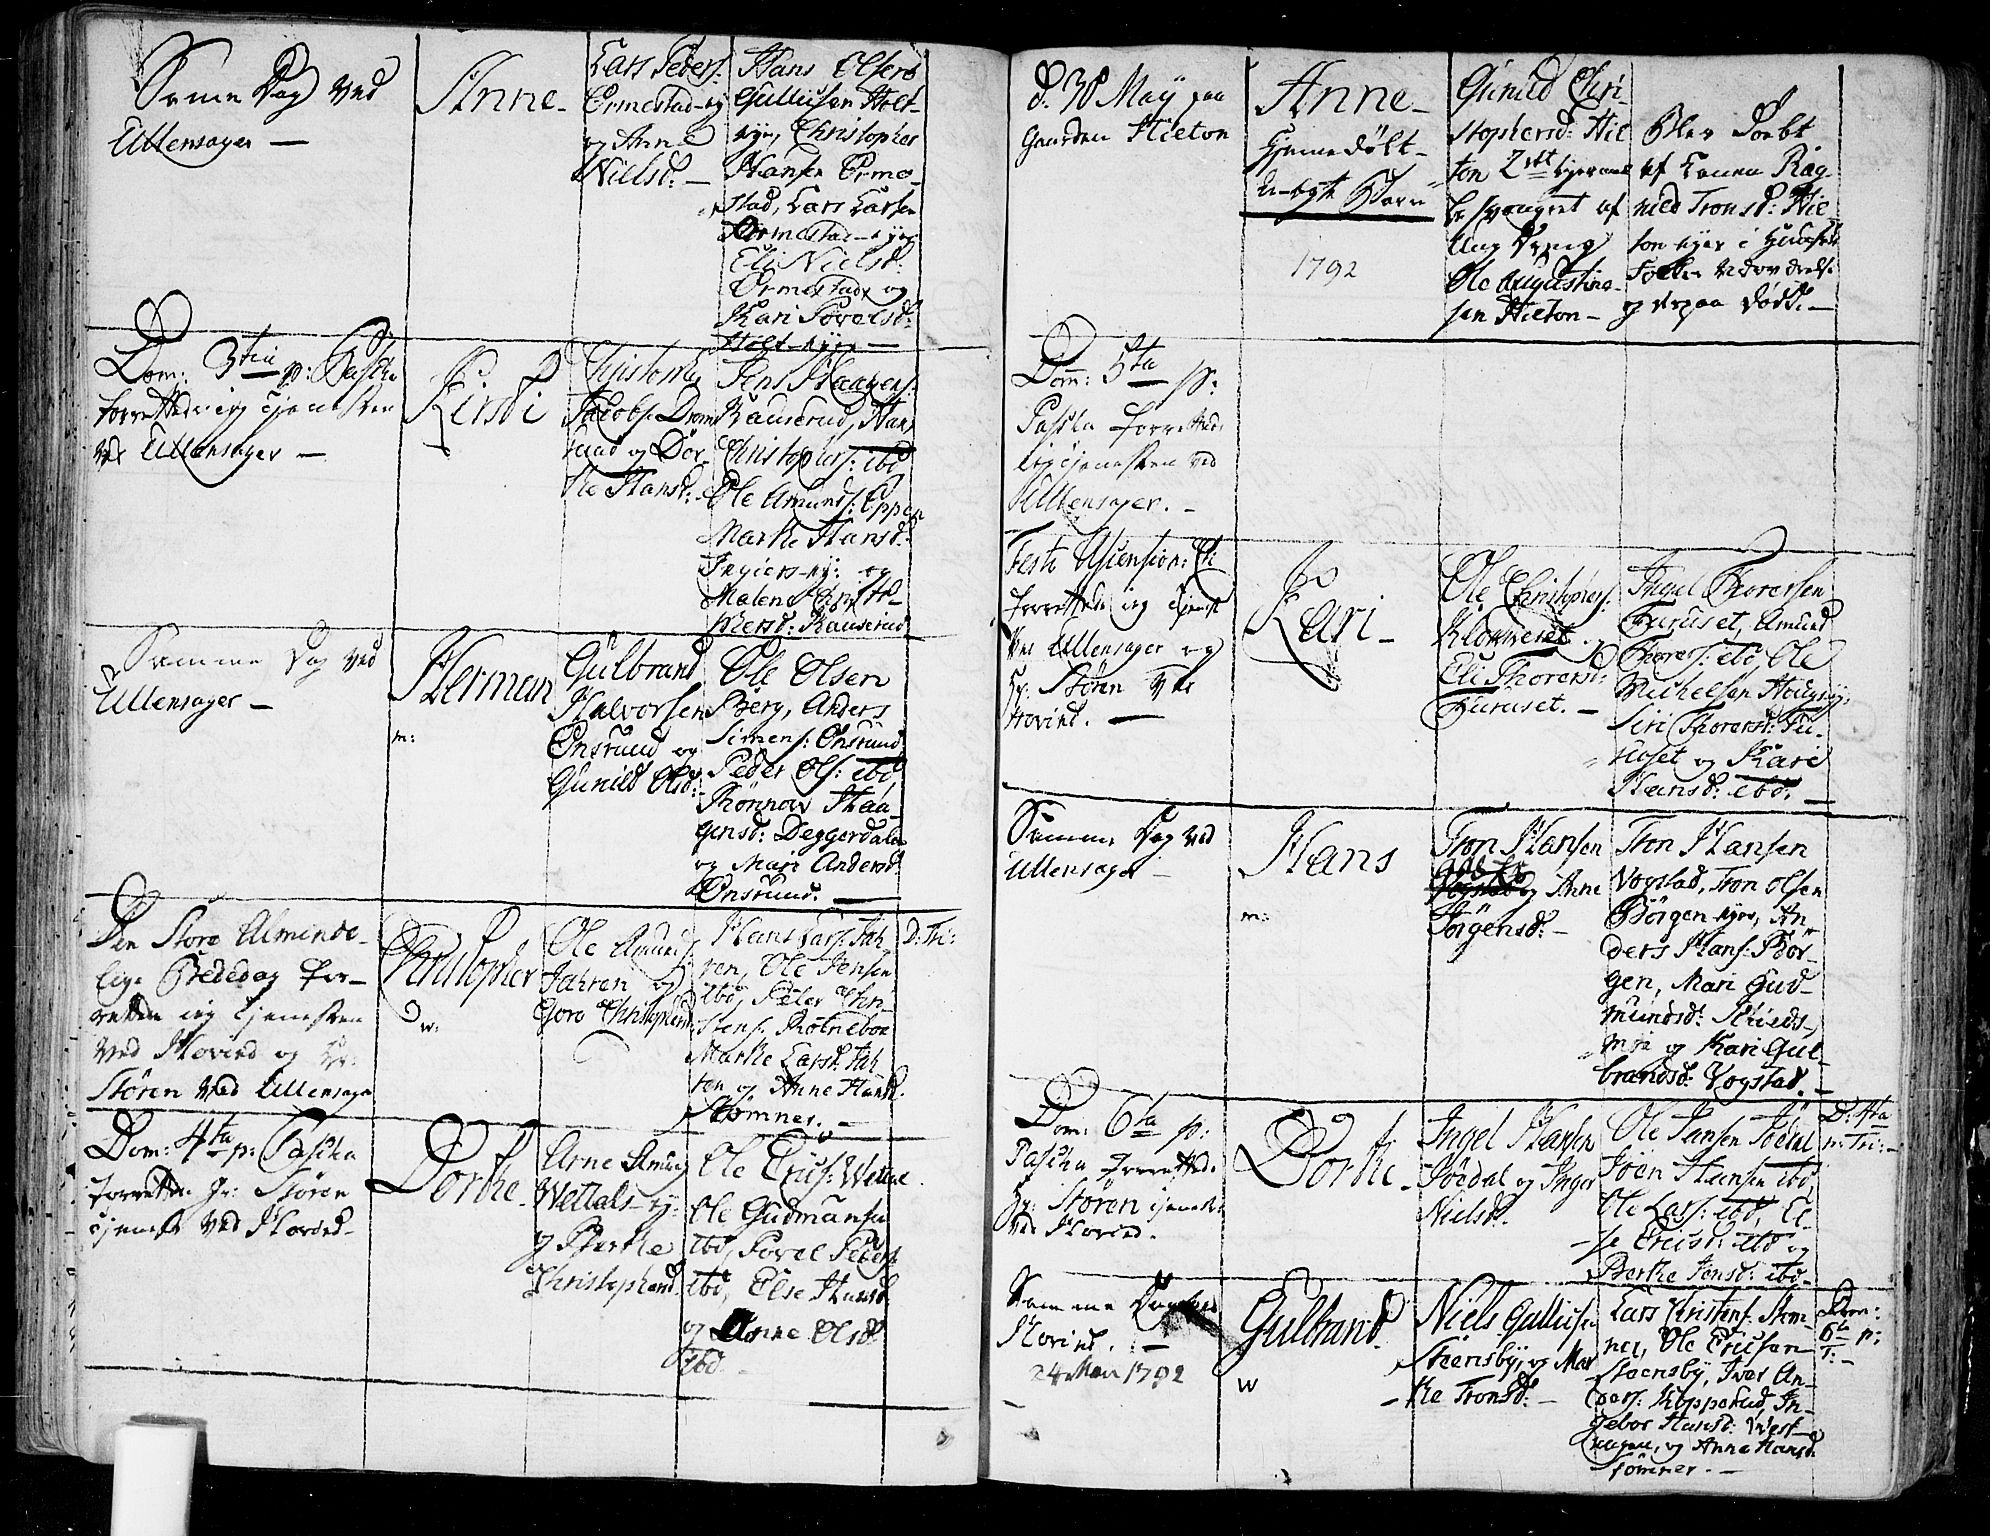 Same Dag ved
Ullensager —
Anne
Lars Peders:
Ormestad-ey
og Anne
Nielsd: —
Hans Olsen
Gullichsen Holt-
eye, Christopher
Hansen Orme-
stad, Lars Larsen
Ormestad-eye
Eli Nielsd:
Ormestad og
Kari Povelsd:
Holt-eye —
Dom: 3tia p: Pascha
forrettede ieg Tjenesten
ved Ullensager —
Kirsti
Christopher
Jacobs: Drom-
rud og Dor-
the Hansd:
Jens Haagens:
Rauserud, Hans
Christophers: ibd
Ole Amunds: Eppen
Marthe Hansd:
ey: og
Malene Christo-
phersd: Rauserud
Samme Dag ved
Ullensager —
Herman
m:
Gulbrand
Halvorsen
Onsrud og
Gunild Olsd:
Ole Olsen
Berg, Anders
Simens: Onsrud
Peder Ols: ibd
Rønnov Haa-
gensd: Deggerdalen
og Mari Andersd:
Onsrud. —
Den Store Alminde-
lige Bededag for-
rettede ieg Tjenesten
ved Hovind og Hr:
Støren ved Ullensager
Christopher
w:
Ole Amunds:
Jahren og
Goro Christophersd:
Hans Lars: Jah-
ren, Ole Jensen
ibd, Peter Chri-
stens:
Marthe Larsd: Jah-
ren og Anne Hansd:
Stomner. —
D: Tri:
Dom: 4ta p: Pascha
forrettede Hr: Støren
Tjeneste ved Hovind
Dorthe
Arne Amunds:
Wettals-ey:
og Marthe
Christophersd:
Ole Erics: Wettal
Ole Gudmunsen
ibd, Povel Peders:
ibd, Else Hansd:
og Anne Olsd:
ibd
d: 30 May paa
Gaarden Hilton
Anne
hjemedøbt
u-ægte Barn
1792
Gunild Chri-
stophersd: Hil-
ton 2det Leyermaal
besvangret af
Ung Dreng
Ole Augustin-
sen Hilton —
Blev Døbt
af Konen Rag-
nild Tronsd: Hil-
ton eye i
Folkes nærværelse
og derpaa døde. —
Dom: 5ta p:
Pascha forrettede
ieg Tjenesten ved
Ullensager. —
Festo Ascension: Chr:
forrettede ieg Tjenest
ved Ullensager og
Hr: Støren ved
Hovind. —
Kari
Ole Christophers:
Kløvveret og
Eli Thorersd:
Furuset. —
Ingel Thorersen
Furuset, Amund
Thorers: ibd, Ole
Michelsen
Siri Thorersd: Fu-
ruset og Kari
Hansd: ibd. —
Samme Dag ved
Ullensager —
Hans
m:
Tron Hansen
og Anne
Jörgensd: —
Tron Hansen
Vogstad, Tron Olsen
Börgen eye, An-
ders Hans: Bör-
gen, Mari Gud-
mundsd: Skieds-
moe og Kari Gul-
brandsd: Vogstad. —
Dom: 6ta p:
Pascha forrettede
Hr: Støren Tjenesten
ved Hovind.
Dorthe
Ingel Hansen
Jödal og Inger
Nielsd:
Ole Jansen Jödal
Joen Hansen ibd,
Ole Lars: ibd, El-
se Ericsd: ibd og
Berthe Jensd: ibd
D: 4ta
p: Tri: —
Samme Dag ved
Hovind. —
24 Mai 1792
Gulbrand
w
Niels Gullicsen
Stensby, og Mar-
the Tronsd: —
Lars Christens: Stom-
ner, Ole Ericsen
Steensby, Iver An-
ders: Kopperud, In-
gebor Hansd: West-
hagen, og Anne Hansd:
Tømmer. —
Dom:
6ta p:
T: —